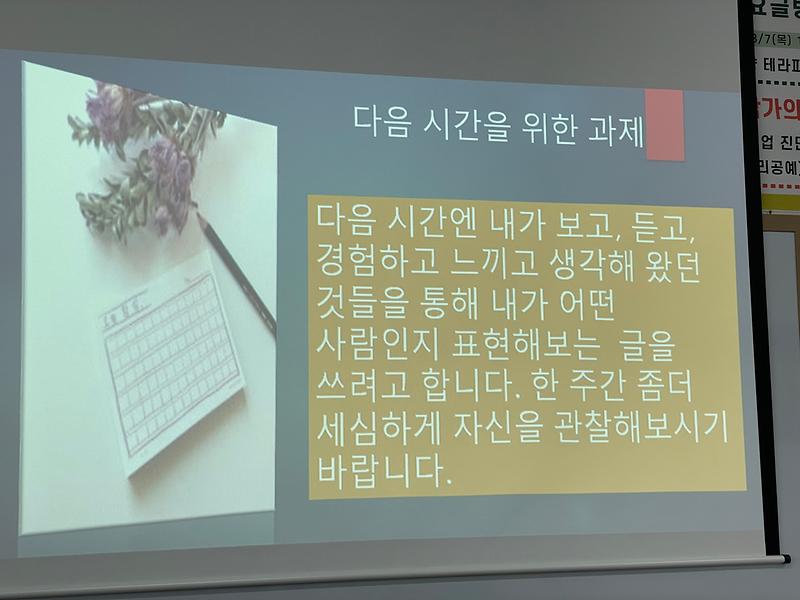 다음 시간을 위한 과제
다음 시간엔 내가 보고, 듣고,
경험하고 느끼고 생각해 왔던
것들을 통해 내가 어떤
사람인지 표현해보는 글을
쓰려고 합니다. 한 주간 좀더
세심하게 자신을 관찰해보시기
바랍니다.
/7(목)
테라피